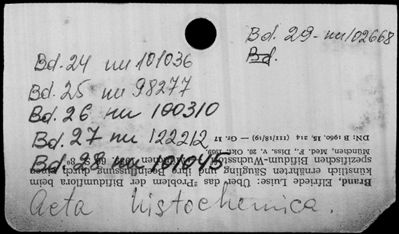 Bd. 29 - nu 102668
Bd.
Bd. 24 nu 101036
Bd. 25 nu 98277
Bd. 26 nu 100310
Bd. 27 nu 122212
Bd. 28 nu 101045
Acta histochemica.
Brand, Elfriede Luise: Über das Problem der Bifidumflora beim
künstlich ernährten Säugling und ihre Beeinflussung durch einen
spezifischen Bifidum-Wuchsstoff. München 1959. 66 S. 8°
München, Med. F., Diss. v. 20. Okt. 1959
DN: B 1960, 15, 214 (111/18/19) — Gr. 11